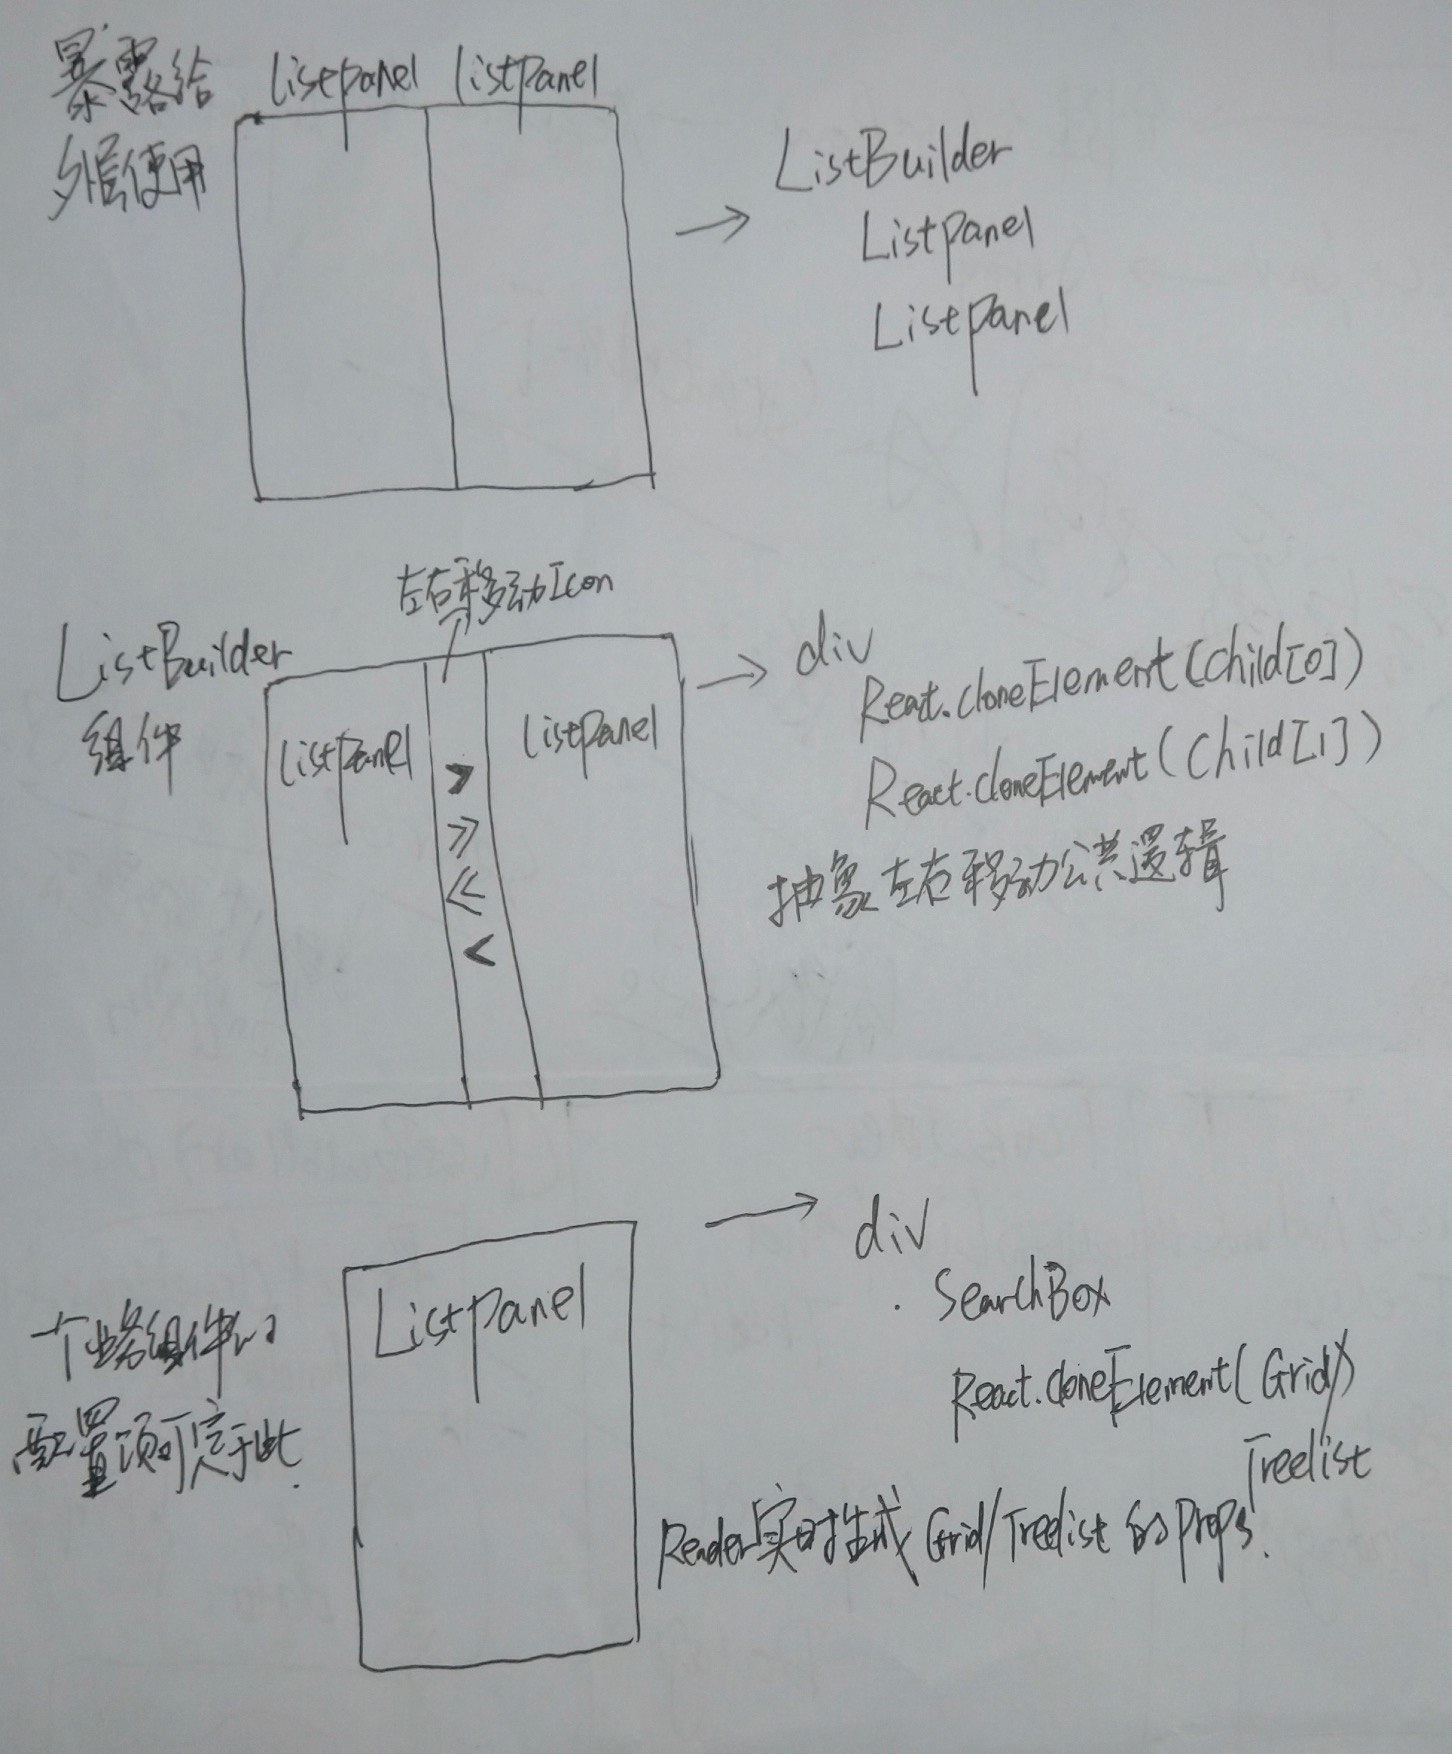 暴露给
外层使用
Listpanel ListPanel
ListBuilder
Listpanel
Listpanel
左右移动Icon
ListBuilder
组件
ListPanel
ListPanel
>
>>
<<
<
div
React.cloneElement(Child[0])
React.cloneElement(Child[1])
抽象左右移动公共逻辑
个业务组件的
配置项可定于此.
Listpanel
div
SearchBox
React.cloneElement(Grid/)
Treelist
Render实时生成 Grid/Treelist 的props.